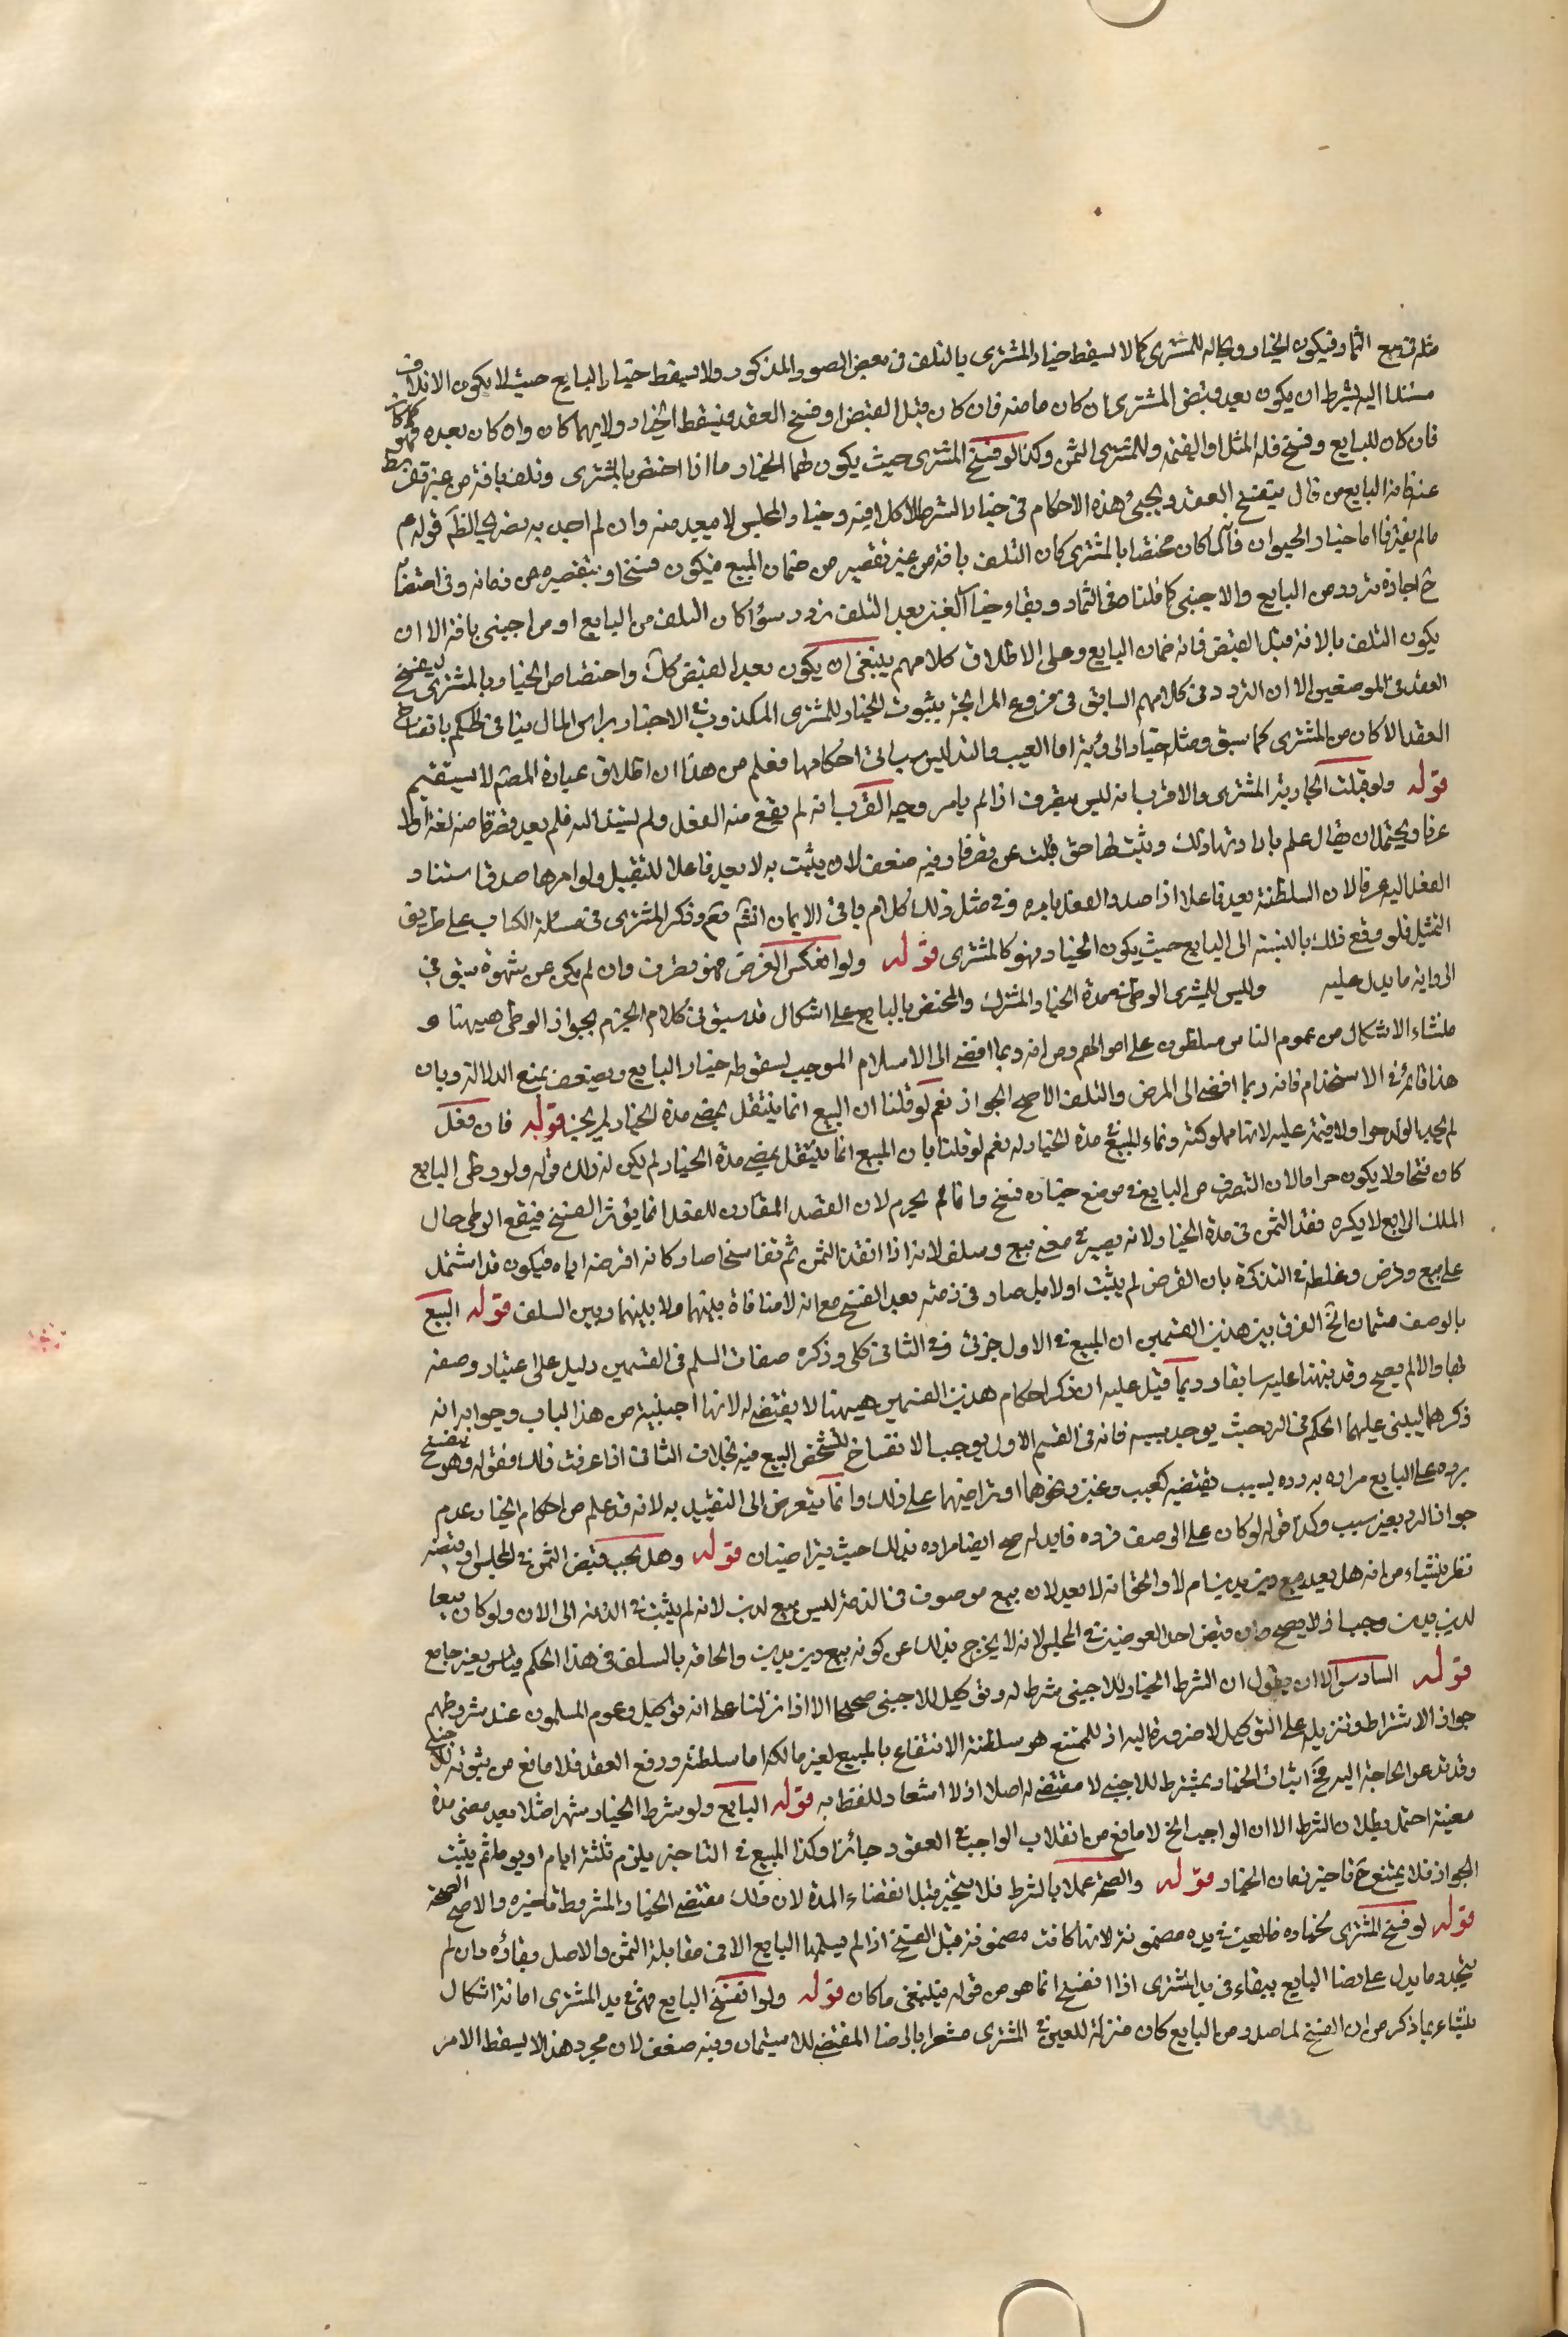 مثله في بيع الثمار فيكون الخيار بحاله للمشتري كما لا يسقط خيار المشتري بالتلف في بعض الصور المذكور ولا يسقط خيار البايع حيث لا يكون الاتلاف
مستندا اليه بشرط ان يكون بعد قبض المشتري ان كان ضامنه فان كان قبل القبض او فسخ العقد فيسقط الخيار ولايهما كان وان كان بعده
فان كان للبايع وفسخ فله المثل او القيمة وللمشتري الثمن وكذا لو فسخ المشتري حيث يكون لهما الخيار وما اذا اختص بالمشتري وتلف بافة من غير تفريط
عنه فانه البايع من قال ينفسخ العقد ويجيء هذه الاحكام في خيار الشرط وخيار المجلس لا يبعد منه وان لم اجد به تصريحا قوله عم
مالم يفترقا اما خيار الحيوان فلما كان مختصا بالمشتري كان التلف بافة من غير تقصير من ضمان المبيع فيكون فسخا وبتقصيره من ضمانه وفي اختصاص
اجازة تردد من البايع والاجنبي كما قلنا في الثمار وبقاء خيار الغبن بعد التلف تردد سواء كان التلف من البايع او من اجنبي بافة الا ان
يكون التلف بالافة قبل القبض فانه ضمان البايع وعلى الاطلاق كلامهم ينبغي ان يكون بعد القبض كذلك واختصاص الخيار بالمشتري
العقد في الموضعين الا ان التردد في كلامهم السابق في فروع المرابحة بثبوت الخيار للمشتري المكذوب في الاخبار براس المال ينافي الحكم بانفساخ
العقد الا كان من المشتري كما سبق ومثل خيار الرؤية اما العيب والتدليس سياتي احكامها فعلم من هذا ان اطلاق عبارة المصم لا يستقيم
قوله ولو قبلت الجارية المشتري والاقرب انه ليس بتصرف اذا لم يامر وجه القرب انه لم يقع منه الفعل ولم يستند اليه فلم يعد تصرفا منه لغة ولا
عرفا ويحتمل ان يقال علم بارادتها ذلك ويثبت لها حق قبلت عن تصرفا وفيه ضعف لان يثبت به لا يعد فاعلا للتقبيل ولو امرها صدق استناد
الفعل اليه عرفا لان السلطنة يعد فاعلا اذا صدر الفعل بامره وفي مثل ذلك كلام ياتي في الايمان انشم تعم وذكر المشتري في مسئلة الكتاب على طريق
التمثيل فلو وقع ذلك بالنسبة الى البايع حيث يكون الخيار فهو كالمشتري قوله ولو انعكس الفرض فهو تصرف وان لم يكن عن شهوة سبق في
الرواية ما يدل عليه وليس للمشتري الوطي في مدة الخيار المشترك والمختص بالبايع على اشكال قد سبق في كلام الجزم بجواز الوطي هيهنا و
منشاء الاشكال من عموم الناس مسلطون على اموالهم ومن انه ربما افضى الى الاستيلاد الموجب لسقوط خيار البايع ويضعف بمنع الدلالة وبان
هذا قائم في الاستخدام فانه ربما افضى الى المرض والتلف الاصح الجواز نعم لو قلنا ان المبيع انما ينتقل بمضي مدة الخيار لم يجز قوله فان فعل
لم يحد الولد حر ولا قيمة عليه لانها مملوكته ونماء المبيع في مدة الخيار له نعم لو قلنا بان المبيع انما ينتقل بمضي مدة الخيار لم يكن له ذلك قوله ولو وطي البايع
كان فسخا ولا يكون حراما لان التصرف من البايع في موضع خياره فسخ وانما لم يحرم لان القصد المقارن للفعل انما يؤثر الفسخ فيقع الوطي حال
الملك الرابع لا يكره نقد الثمن في مدة الخيار ولانه يصير في معنى بيع وسلف لانه اذا انقد الثمن ثم تفاسخا صار كانه اقرضه اياه فيكون قد اشتمل
على بيع وقرض وغلطه في التذكرة بان القرض لم يثبت اولا بل صار في ذمته بعد الفسخ مع انه لا منافاة بينهما ولا بينهما وبين السلف قوله البيع
بالوصف قسمان الخ الفرق بين هذين القسمين ان المبيع في الاول جزئي وفي الثاني كلي وذكره صفات السلم في القسمين دليل على اعتبار وصفه
بها والا لم يصح وقد نبهنا عليه سابقا وربما قيل عليه ان ذكر احكام هذين القسمين هيهنا لا يقتضي له لانها اجنبية من هذا الباب وجوابه انه
ذكرهما ليبنى عليهما الحكم في الرد بحيث يوجد سببه فانه في القسم الاول يوجب الانفساخ لتشخص المبيع فيه بخلاف الثاني اذا عرفت ذلك فقوله وهو ينفسخ
برده على البايع مراده به رده بسبب يقتضيه كعيب وغبن ونحوهما او تراضيهما على ذلك وانما يتعرض الى التقييد به لانه قد علم من احكام الخيار عدم
جواز الرد بغير سبب وكذا قوله لو كان على الوصف فرده فابدله صح ايضا مراده بذلك حيث يتراضيان قوله وهل يجب قبض الثمن في المجلس او قبضه
نظر ينشاء من انه هل يعد بيع دين بدين ام لا والحق انه لا يعد لان بيع موصوف في الذمة ليس بيع لدين لانه لم يثبت في الذمة الى الان ولو كان بيعا
لدين بدين وجب اذ لا يصح وان قبض احد العوضين في المجلس لانه لا يخرج بذلك عن كونه بيع دين بدين والحاقه بالسلف في هذا الحكم قياس بغير جامع
قوله السادس الا ان يقول ان اشرط الخيار للاجنبي شرط له وتوكيل للاجنبي صحيحا الا اذا نزلنا على انه توكيل وعموم المسلمون عند شروطهم
جواز الاشتراط وتنزيله على التوكيل لا ضرورة اليه اذ الممتنع هو سلطنة الانتفاع بالمبيع لغير مالكه اما سلطنة ورفع العقد فلا مانع من ثبوته للاجنبي
وقد تدعو الحاجة اليه مع اثبات الخيار بشرط للاجنبي لا مقتضى له اصلا اذ لا اشعار للفظ به قوله الرابع ولو شرط الخيار شهرا مثلا بعد مضي مدة
معينة احتمل بطلان الشرط الا ان الواجب الخ لا مانع من انقلاب الواجب في العقود جائزا وكذا المبيع في التاخير يلزم ثلثة ايام او يوما ثم يثبت
الجواز فلا يمتنع تاخير زمان الخيار قوله والصحة عملا بالشرط فلا يتخير قبل انقضاء المدة لان ذلك مقتضى الخيار والمشروط تاخيره والاصح الصحة
قوله لو فسخ المشتري بخياره فالعين في يده مضمونة لانها كانت مضمونة قبل الفسخ اذ لم يسلمها البايع الا في مقابلة الثمن والاصل بقاؤه وان لم
يتجدد ما يدل على رضا البايع ببقاء في يد المشتري اذا انفسخ انما هو من قوله فينبغي ما كان قوله ولو انفسخ البايع فهي في يد المشتري امانة اشكال
ينشاء بما ذكر من ان الفسخ لما صدر من البايع كان منزلة للعين في المشتري مشعرا بالرضا المقتضي للاستيمان وفيه ضعف لان مجرد هذا لا يسقط الامر